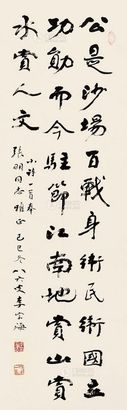 公是沙場百戰身衛民衛國立
功勛而今駐節江南地賞山賞
水賞人文
小詩一首奉
張明同志雅正 己巳冬八六叟李